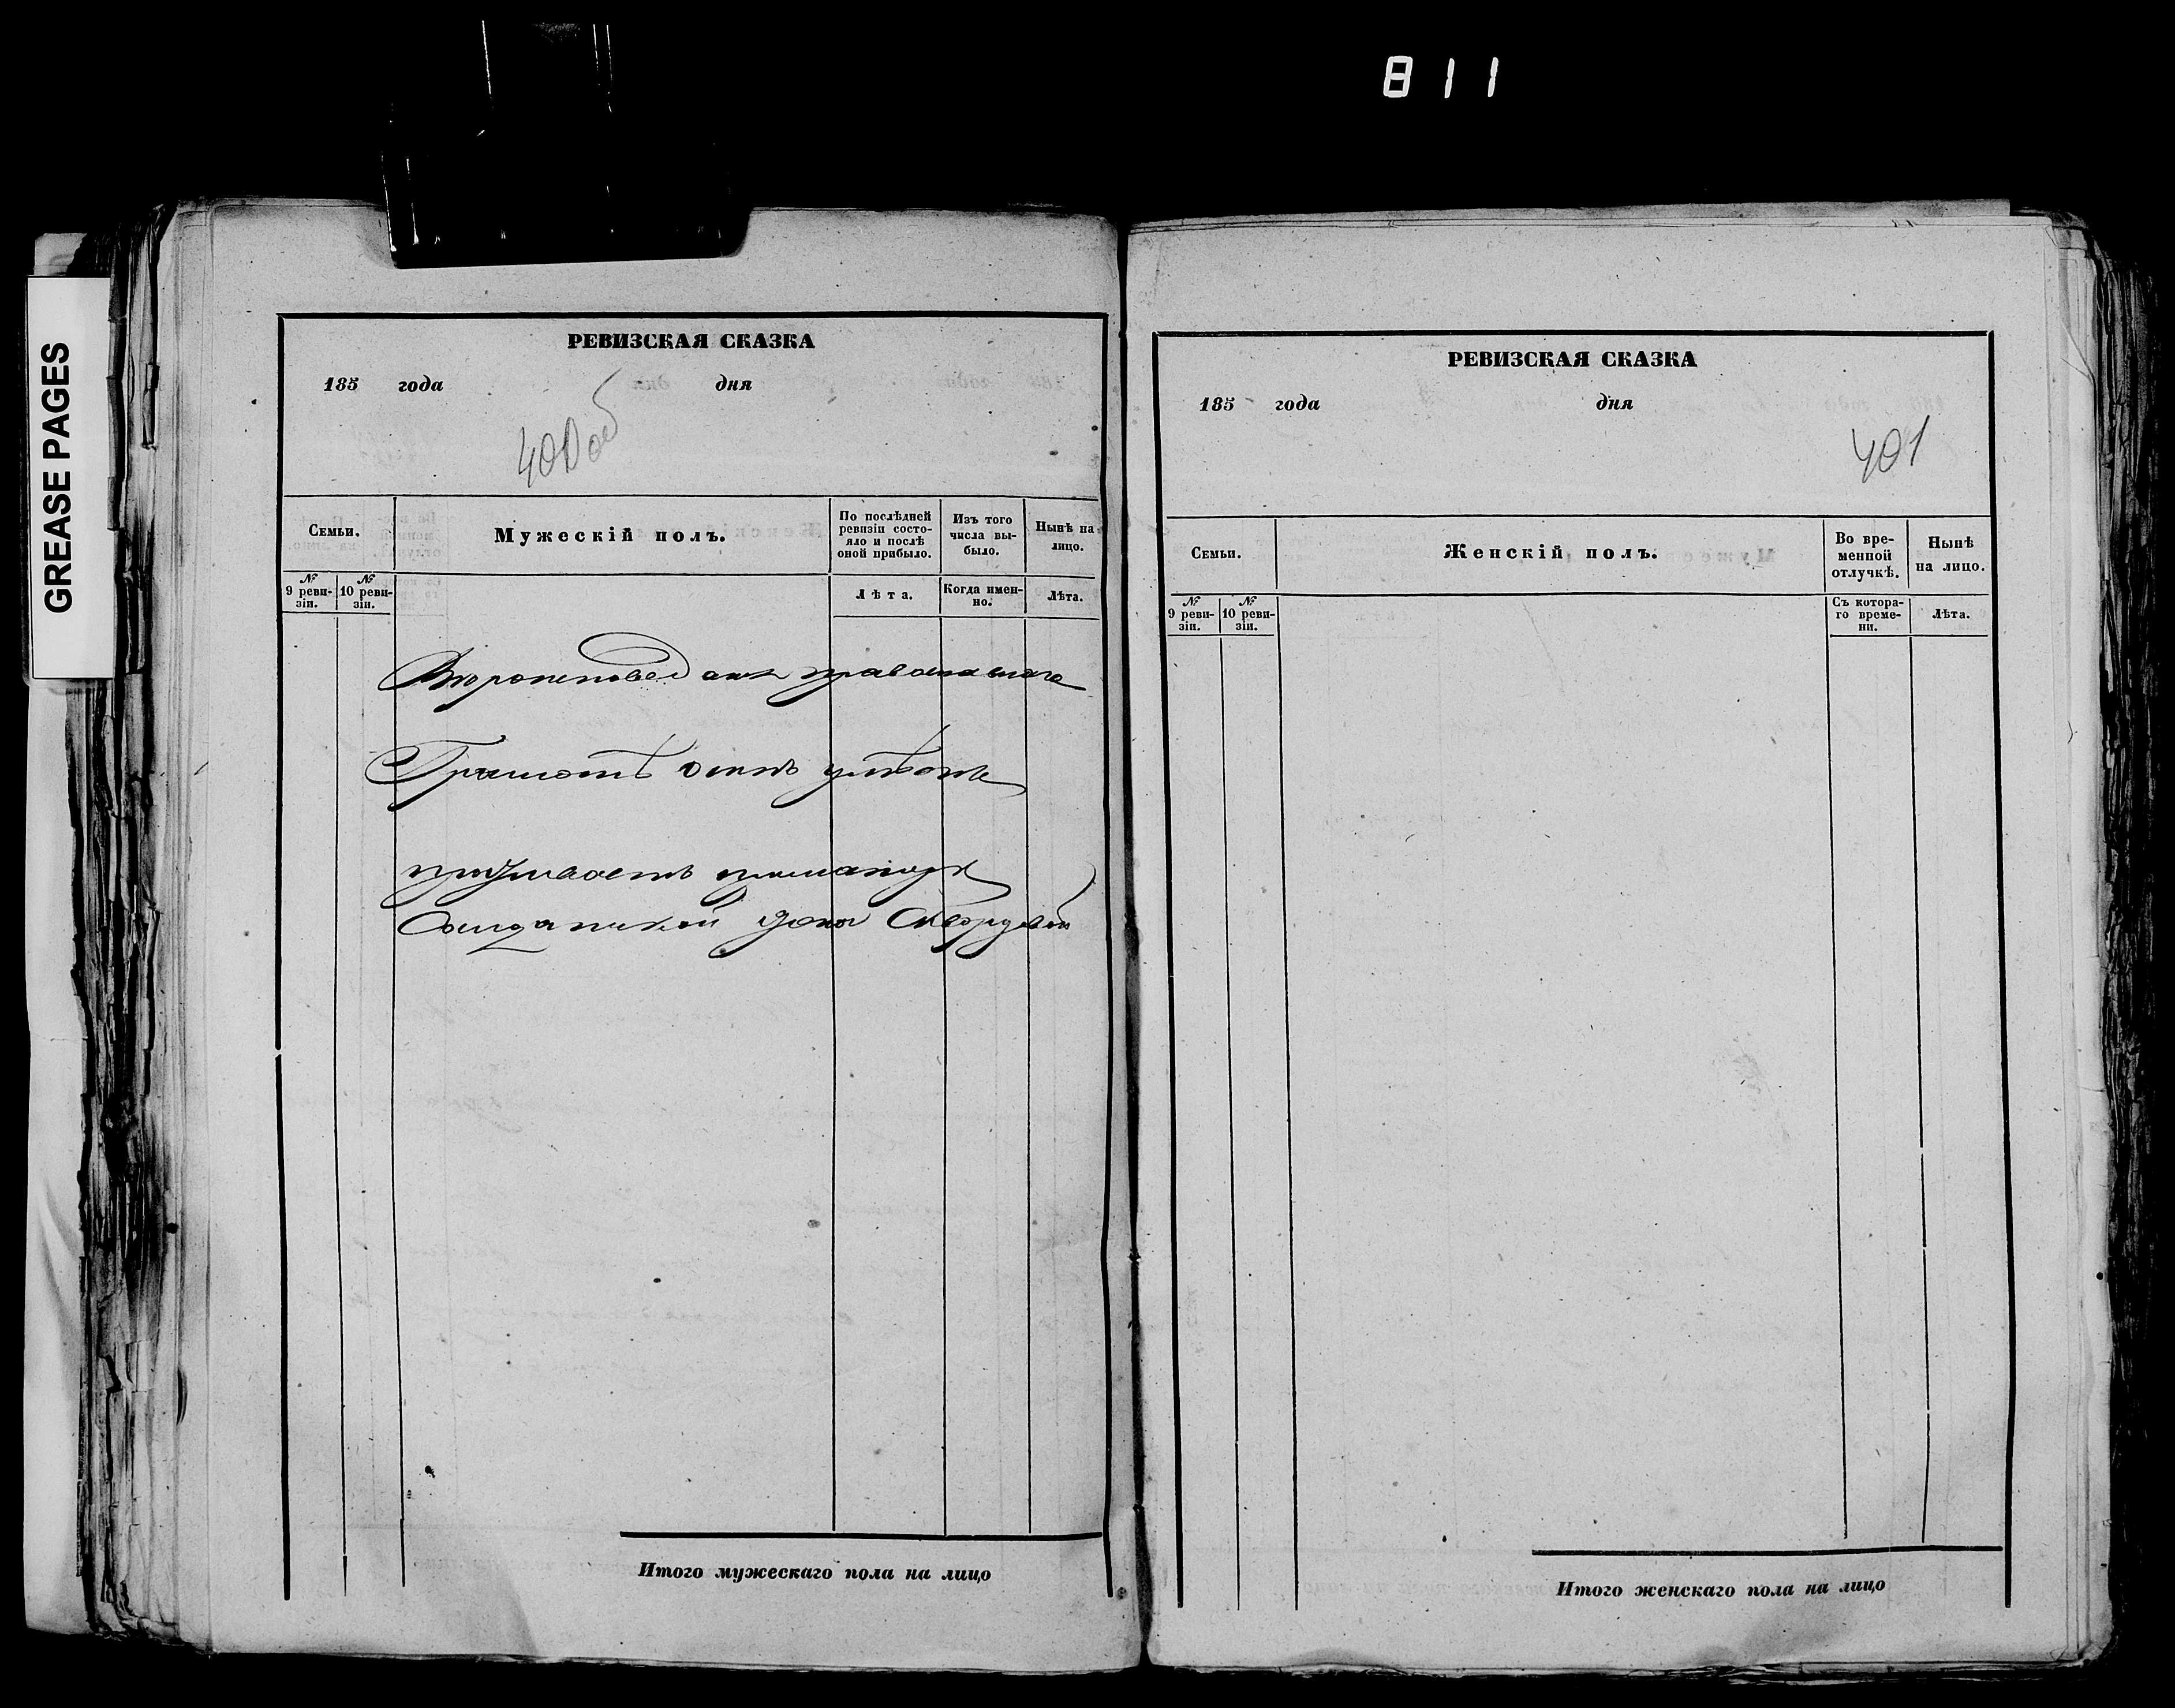 811
GREASE PAGES
РЕВИЗСКАЯ СКАЗКА
185 года дня
400 об
Семьи.
Мужескій полъ.
По послѣдней
ревизіи состо-
яло и послѣ
оной прибыло.
Изъ того
числа вы-
было.
Нынѣ на
лицо.
№
9 реви-
зіи.
№
10 реви-
зіи.
Лѣта.
Когда имен-
но.
Лѣта.
Вѣроисповеданія православнаго
Грамотѣ
проживаетъ
Итого мужескаго пола на лицо
РЕВИЗСКАЯ СКАЗКА
185 года дня
401
Семьи.
Женскій полъ.
Во вре-
менной
отлучкѣ.
Нынѣ
на лицо.
№
9 реви-
зіи.
№
10 реви-
зіи.
Съ котора-
го време-
ни.
Лѣта.
Итого женскаго пола на лицо